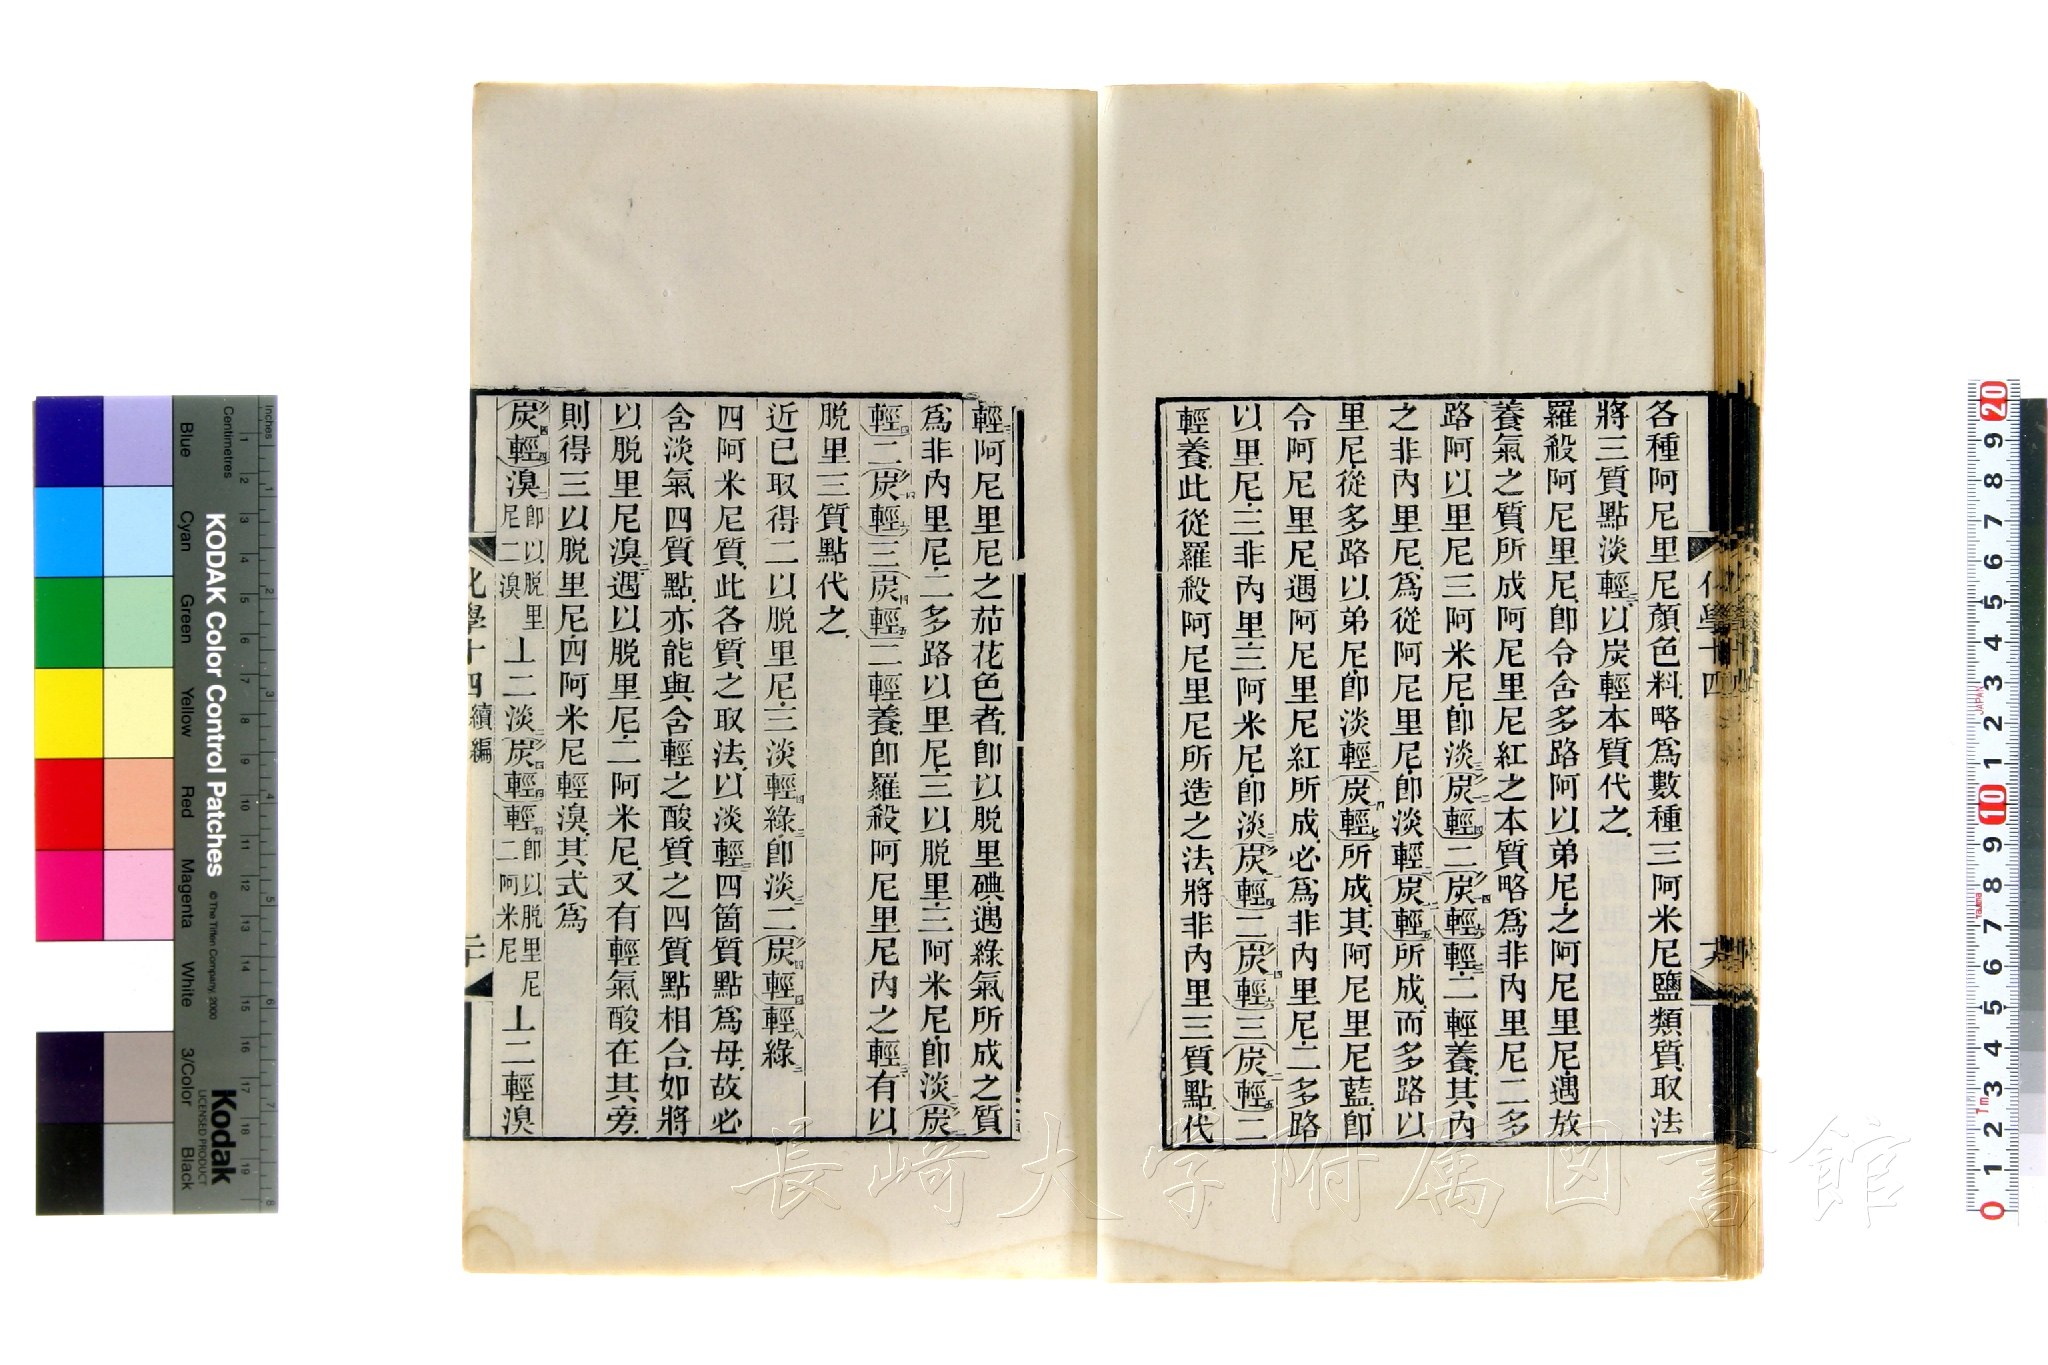 各種阿尼里尼顏色料略爲數種三阿米尼鹽類質取法
將三質點淡輕三以炭輕本質代之
羅殺阿尼里尼卽令含多路阿以弟尼之阿尼里尼遇放
養氣之質所成阿尼里尼紅之本質略爲非內里尼二多
路阿以里尼三阿米尼卽淡炭輕二炭輕輕二輕養其內
之非內里尼爲從阿尼里尼卽淡輕炭輕所成而多路以
里尼從多路以弟尼卽淡輕炭輕所成其阿尼里尼藍卽
令阿尼里尼遇阿尼里尼紅所成必爲非內里尼二多路
以里尼三非內里三阿米尼卽淡炭輕二炭輕三炭輕二
輕養此從羅殺阿尼里尼所造之法將非內里三質點代
輕阿尼里尼之茄花色者卽以脱里碘遇綠氣所成之質
爲非內里尼二多路以里尼三以脱里三阿米尼卽淡炭
輕二炭輕三炭輕二輕養卽羅殺阿尼里尼內之輕有以
脱里三質點代之
近已取得二以脱里尼三淡輕綠卽淡二炭輕輕綠
四阿米尼質此各質之取法以淡輕四箇質點爲母故必
含淡氣四質點亦能與含輕之酸質之四質點相合如將
以脱里尼溴遇以脱里尼二阿米尼又有輕氣酸在其旁
則得三以脱里尼四阿米尼輕溴其式爲
炭輕溴卽以脱里尼二溴⊥二淡炭輕輕卽以脱里尼二阿米尼⊥二輕溴
化學十四 續編
二十
化學十四
KODAK Color Control Patches
© The Tiffen Company, 2000
Kodak
LICENSED PRODUCT
Inches
Centimetres
Blue
Cyan
Green
Yellow
Red
Magenta
White
3/Color
Black
長崎大学附属図書館
JAPAN